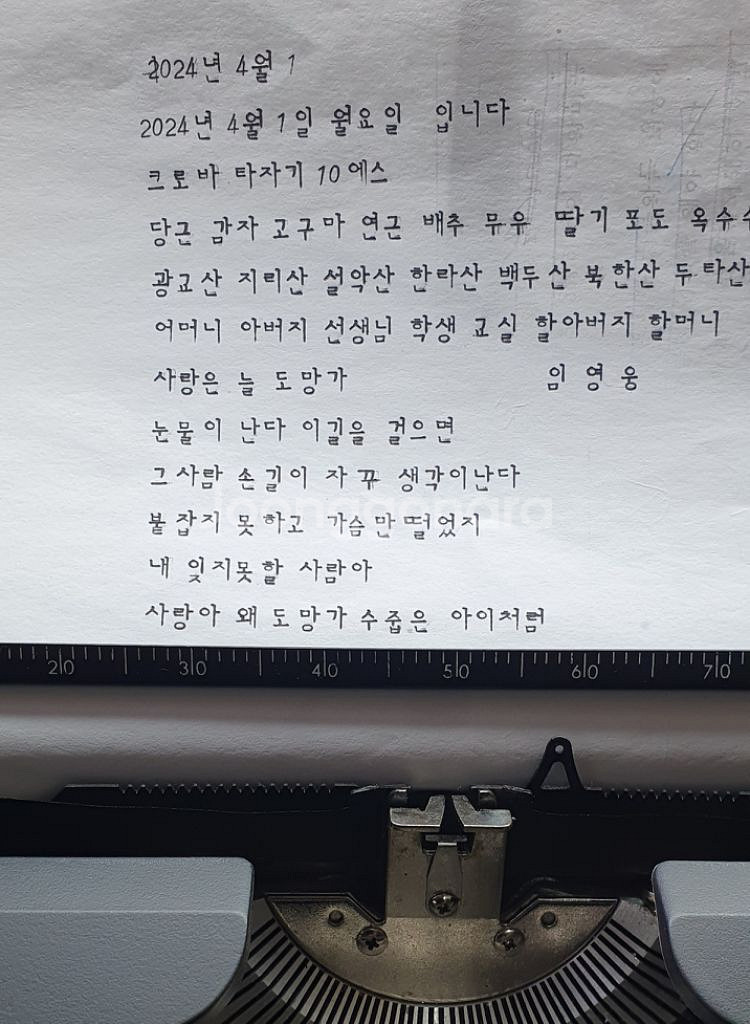 2024년 4월 1
2024년 4월 1일 월요일 입니다
크로바 타자기 10에스
당근 감자 고구마 연근 배추 무우 딸기 포도 옥수수
광교산 지리산 설악산 한라산 백두산 북한산 두타산
어머니 아버지 선생님 학생 교실 할아버지 할머니
사랑은 늘 도망가 임영웅
눈물이 난다 이길을 걸으면
그사람 손길이 자꾸 생각이난다
붙잡지 못하고 가슴만떨었지
내 잊지못할 사람아
사랑아 왜 도망가 수줍은 아이처럼
20 30 40 50 60 70